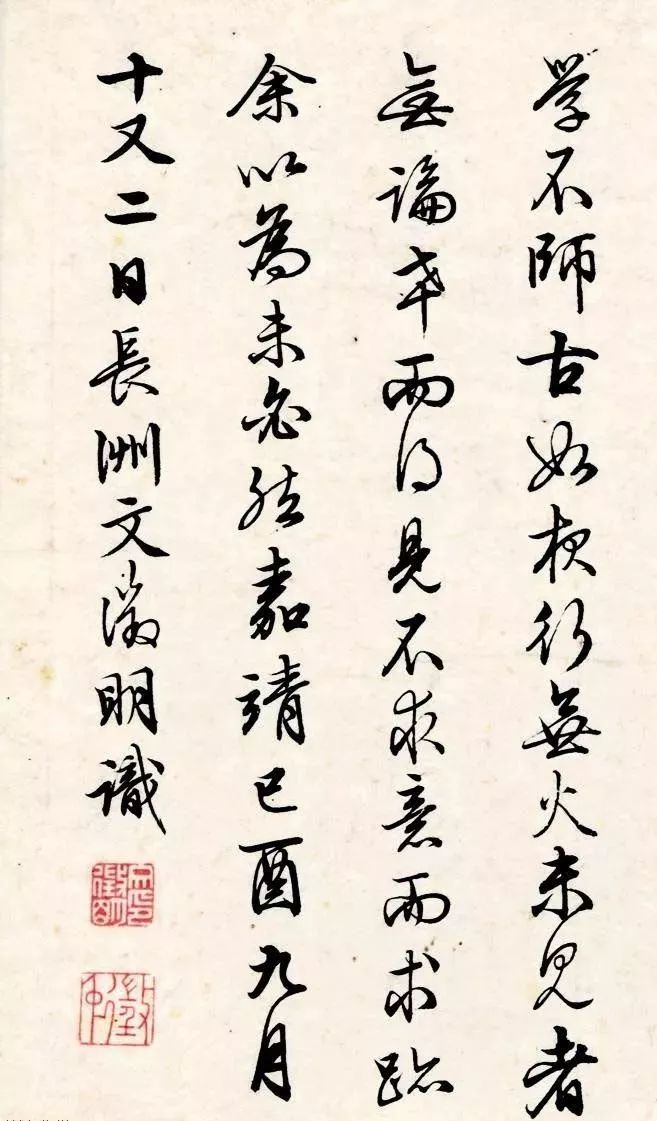 學不師古如夜行無火未見者
無論幸而得見不求意而求跡
余以為未必然嘉靖己酉九月
十又二日長洲文徵明識
徵仲